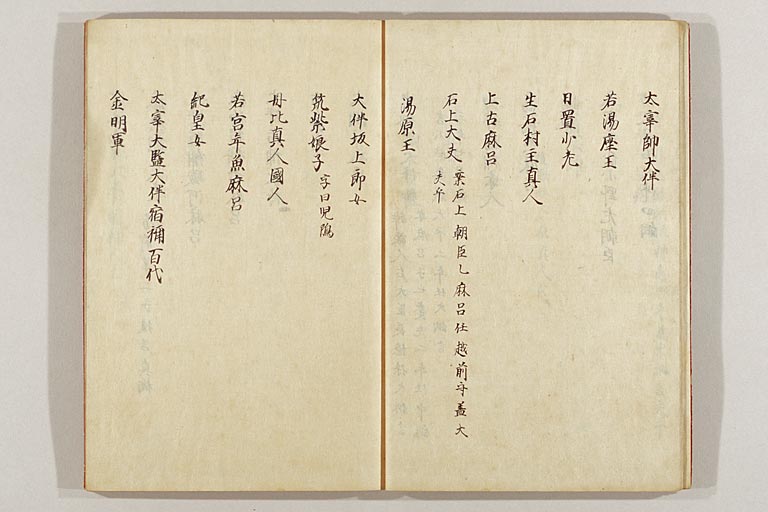 太宰帥大伴
若湯座王
日置少老
生石村王真人
上古麻呂
石上大夫 案石上朝臣乙麻呂任越前守蓋大
夫乎
湯原王
大伴坂上郎女
筑紫娘子 字曰児嶋
丹比真人國人
若宮年魚麻呂
紀皇女
太宰大監大伴宿祢百代
金明軍